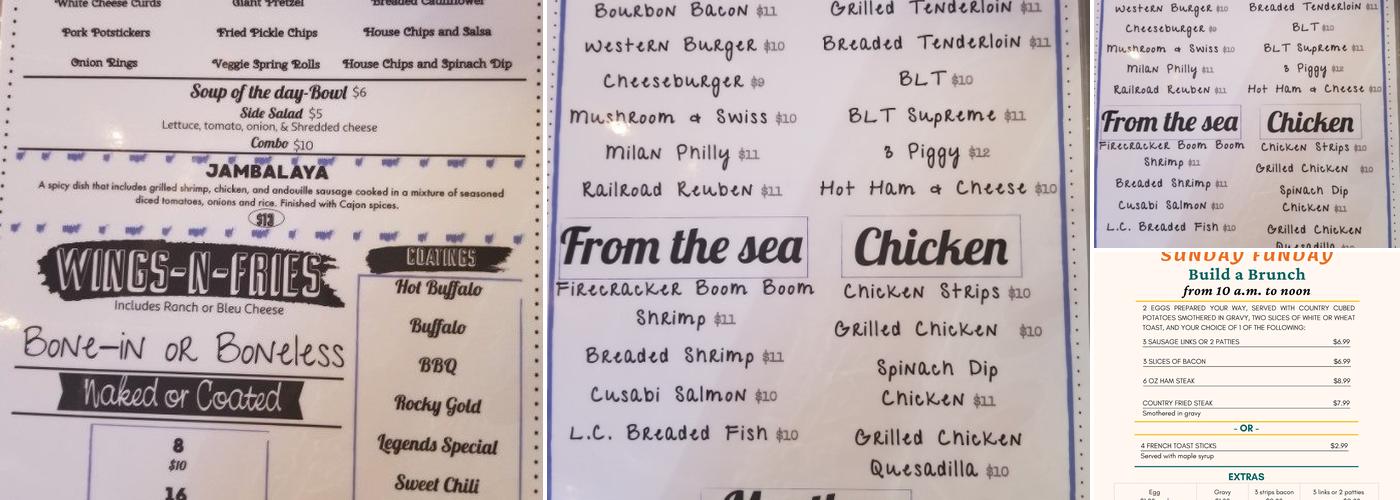 White Cheese Curds
Giant Pretzel
Breaded Cauliflower
Pork Potstickers
Fried Pickle Chips
House Chips and Salsa
Onion Rings
Veggie Spring Rolls
House Chips and Spinach Dip
Soup of the day-Bowl $6
Side Salad $5
Lettuce, tomato, onion, & Shredded cheese
Combo $10
JAMBALAYA
A spicy dish that includes grilled shrimp, chicken, and andouille sausage cooked in a mixture of seasoned
diced tomatoes, onions and rice. Finished with Cajon spices.
$13
WINGS-N-FRIES
Includes Ranch or Bleu Cheese
Bone-in or Boneless
Naked or Coated
8
$10
16
COATINGS
Hot Buffalo
Buffalo
BBQ
Rocky Gold
Legends Special
Sweet Chili
Bourbon Bacon $11
Western Burger $10
Cheeseburger $9
Mushroom & Swiss $10
Milan Philly $11
Railroad Reuben $11
Grilled Tenderloin $11
Breaded Tenderloin $11
BLT $10
BLT Supreme $11
3 Piggy $12
Hot Ham & Cheese $10
From the sea
Firecracker Boom Boom
Shrimp $11
Breaded Shrimp $11
Cusabi Salmon $10
L.C. Breaded Fish $10
Chicken
Chicken Strips $10
Grilled Chicken $10
Spinach Dip
Chicken $11
Grilled Chicken
Quesadilla $10
Western Burger $10
Cheeseburger $9
Mushroom & Swiss $10
Milan Philly $11
Railroad Reuben $11
Breaded Tenderloin $11
BLT $10
BLT Supreme $11
3 Piggy $12
Hot Ham & Cheese $10
From the sea
Firecracker Boom Boom
Shrimp $11
Breaded Shrimp $11
Cusabi Salmon $10
L.C. Breaded Fish $10
Chicken
Chicken Strips $10
Grilled Chicken $10
Spinach Dip
Chicken $11
Grilled Chicken
Quesadilla
SUNDAY FUNDAY
Build a Brunch
from 10 a.m. to noon
2 EGGS PREPARED YOUR WAY, SERVED WITH COUNTRY CUBED
POTATOES SMOTHERED IN GRAVY, TWO SLICES OF WHITE OR WHEAT
TOAST, AND YOUR CHOICE OF 1 OF THE FOLLOWING:
3 SAUSAGE LINKS OR 2 PATTIES $6.99
3 SLICES OF BACON $6.99
6 OZ HAM STEAK $8.99
COUNTRY FRIED STEAK $7.99
Smothered in gravy
- OR -
4 FRENCH TOAST STICKS $2.99
Served with maple syrup
EXTRAS
Egg
Gravy
3 strips bacon
3 links or 2 patties